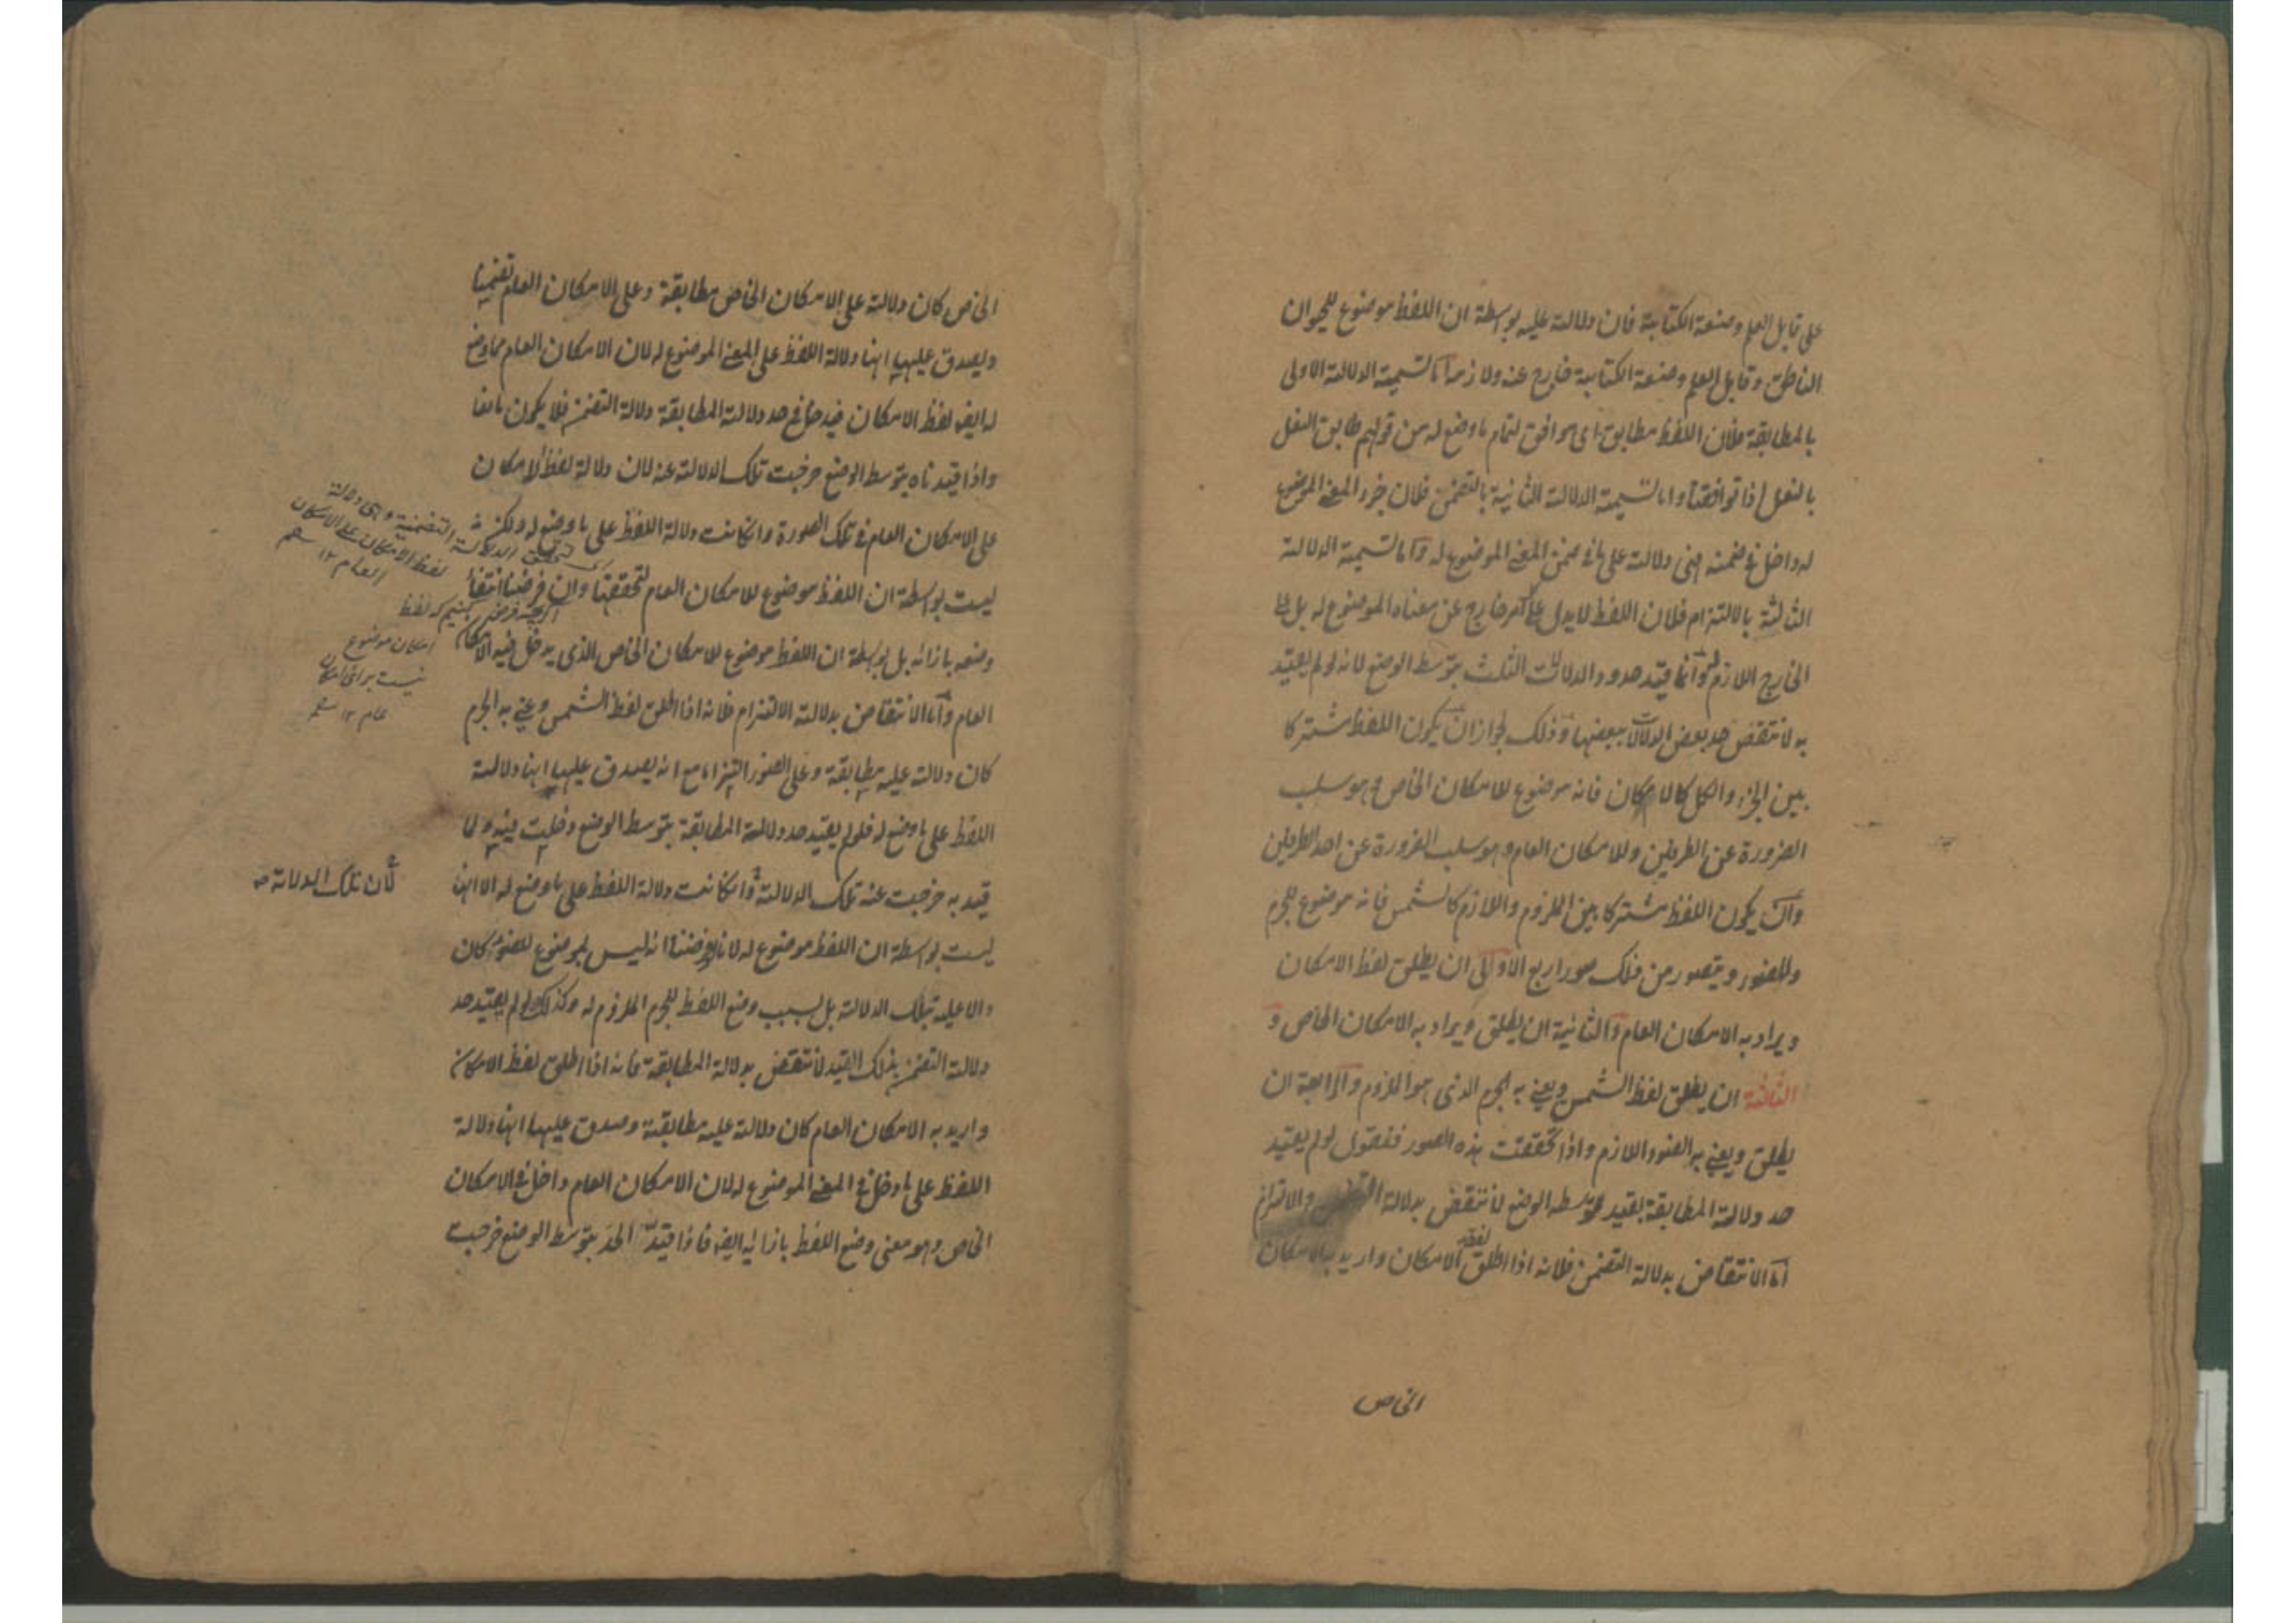 على قابل العلم وصنعة الكتابة فان دلالته عليه بواسطة ان اللفظ موضوع للحيوان
الناطق وقابل العلم وصنعة الكتابة خارج عنه ولازم اما تسمية الدلالة الاولى
بالمطابقة فلان اللفظ مطابق اى موافق لتمام ما وضع له من قولهم طابق النعل
بالنعل اذا توافقتا واما تسمية الدلالة الثانية بالتضمن فلان جزء المعنى الموضوع
له داخل فى ضمنه فهى دلالته على ما فى ضمن المعنى الموضوع له واما تسمية الدلالة
الثالثة بالالتزام فلان اللفظ لا يدل على كل امر خارج عن معناه الموضوع له بل على
الخارج اللازم له وانما قيد حدود الدلالات الثلث بتوسط الوضع لانه لو لم يقيد
به لانتقض حد بعض الدلالات ببعضها وذلك لجواز ان يكون اللفظ مشتركا
بين الجزء والكل كالامكان فانه موضوع للامكان الخاص وهو سلب
الضرورة عن الطرفين وللامكان العام وهو سلب الضرورة عن احد الطرفين
وان يكون اللفظ مشتركا بين الملزوم واللازم كالشمس فانه موضوع للجرم
وللضوء ويتصور من ذلك صور اربع الاولى ان يطلق لفظ الامكان
ويراد به الامكان العام والثانية ان يطلق ويراد به الامكان الخاص و
الثالثة ان يطلق لفظ الشمس ويعنى به الجرم الذى هو الملزوم والرابعة ان
يطلق ويعنى به الضوء اللازم واذا تحققت هذه الصور فنقول لو لم يقيد
حد دلالة المطابقة بقيد توسط الوضع لانتقض بدلالة التضمن والالتزام
اما الانتقاض بدلالة التضمن فلانه اذا اطلق لفظ الامكان واريد به الامكان
الخاص
الخاص كان دلالته على الامكان الخاص مطابقة وعلى الامكان العام تضمنا
ويصدق عليها انها دلالة اللفظ على المعنى الموضوع له لان الامكان العام مما وضع
له ايضا لفظ الامكان فيدخل فى حد دلالة المطابقة دلالة التضمن فلا يكون مانعا
واذا قيدناه بتوسط الوضع خرجت تلك الدلالة عنه لان دلالة لفظ الامكان
على الامكان العام فى تلك الصورة وان كانت دلالة اللفظ على ما وضع له ولكنها
ليست بواسطة ان اللفظ موضوع للامكان العام لتحققها وان فرضنا انتفاء
وضعه بازائه بل بواسطة ان اللفظ موضوع للامكان الخاص الذى يدخل فيه الامكان
العام واما الانتقاض بدلالة الالتزام فلانه اذا اطلق لفظ الشمس وعنى به الجرم
كان دلالته عليه مطابقة وعلى الضوء التزاما مع انه يصدق عليها انها دلالة
اللفظ على ما وضع له فلو لم يقيد حد دلالة المطابقة بتوسط الوضع دخلت فيه ولما
قيد به خرجت عنه تلك الدلالة وان كانت دلالة اللفظ على ما وضع له الا انها
ليست بواسطة ان اللفظ موضوع له لانا لو فرضنا انه ليس بموضوع للضوء كان
دالا عليه بتلك الدلالة بل بسبب وضع اللفظ للجرم الملزوم له وكذلك لو لم يقيد حد
دلالة التضمن بذلك القيد لانتقض بدلالة المطابقة فانه اذا اطلق لفظ الامكان
واريد به الامكان العام كان دلالته عليه مطابقة وصدق عليها انها دلالة
اللفظ على ما دخل فى المعنى الموضوع له لان الامكان العام داخل فى الامكان
الخاص وهو معنى وضع اللفظ بازائه ايضا فاذا قيدنا الحد بتوسط الوضع خرجت
اى تحقق الدلالة التضمنية وهى دلالة
لفظ الامكان على الامكان
العام ١٢
اگرچه فرض كنيم كه لفظ
امكان موضوع
نيست براى امكان
عام ١٢
لان تلك الدلالة